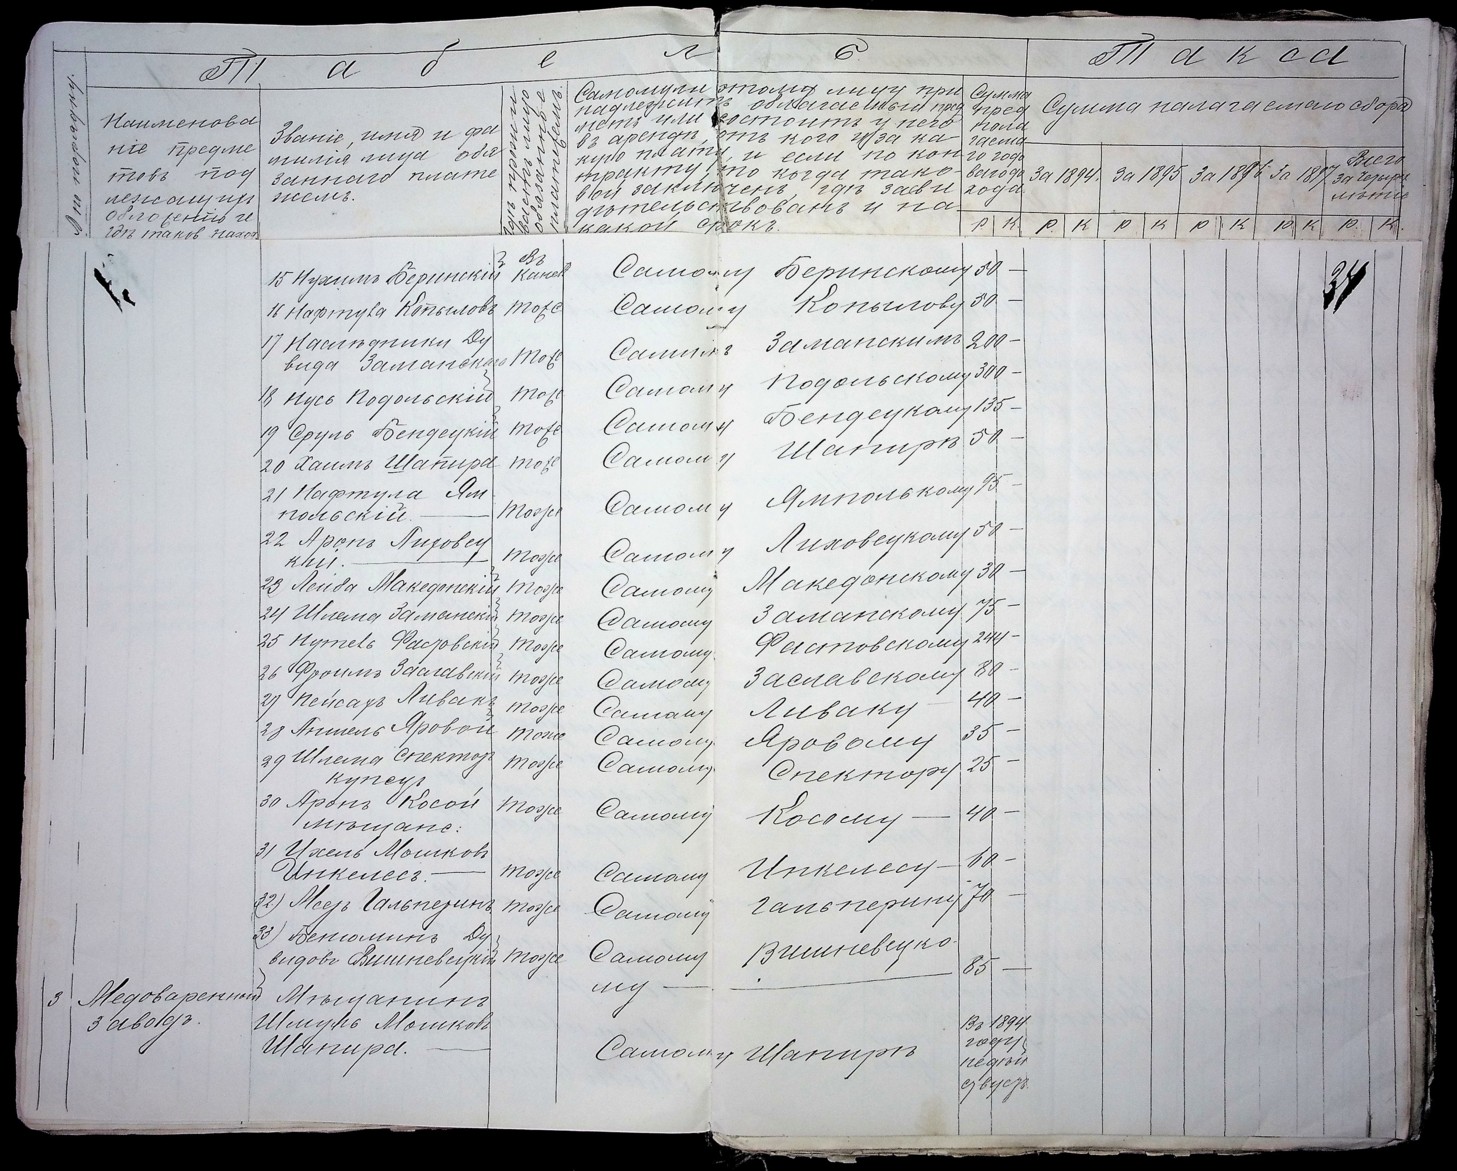 Табель Такса
№ по порядку
Наименова
ніе предме
товъ под
лежащихъ
обложенію и
гдѣ таков. наход.
Званіе, имя и фа
милія лица обя
заннаго плате
жемъ.
обязанное
платежемъ
Самому ли этому лицу при
надлежитъ облагаемый пред
метъ или состоитъ у него
въ арендѣ, отъ кого и за ка
кую плату, и если по кон
тракту, то когда тако-
вой заключенъ, гдѣ засви
дѣтельствованъ и на
какой срокъ.
Сумма
пред
пола
гаема
го годо
ваго до
хода
Сумма налагаемаго сбора
За 1894. За 1895 За 1896 За 1897 Всего за четыре
Р. К. Р. К Р К Р К Р. К Р. К.
34
15 Нухимъ Беринскій Въ Канев Самому Беринскому 50 —
16 Нафтула Копыловъ тоже Самому Копылову 50 —
17 Наслѣдники Ду
вида Заманскаго тоже Самимъ Заманскимъ 200 —
18 Нусь Подольскій тоже Самому Подольскому 300 —
19 Сруль Бендецкій тоже Самому Бендецкому 135 —
20 Хаимъ Шапира тоже Самому Шапирѣ 50 —
21 Нафтула Ям
польскій. — тоже Самому Ямпольскому 95 —
22 Аронъ Лиховец
кій. — тоже Самому Лиховецкому 50 —
23 Лейба Македонскій тоже Самому Македонскому 30 —
24 Шлема Заманскій тоже Самому Заманскому 75 —
25 Фастовскій тоже Самому Фастовскому 244 —
26 Фроимъ Заславскій тоже Самому Заславскому 80 —
27 Пейсахъ Ливакъ тоже Самому Ливаку — 40 —
28 Аншель Яровой тоже Самому Яровому 35 —
29 Шлема Спекторъ тоже Самому Спектору 25 —
купецъ
30 Аронъ Косой тоже Самому Косому — 40 —
мѣщанс:
31 Ихель Мошковъ
Инкелесъ. — тоже Самому Инкелесу — 60 —
32) Мееръ Гальперинъ тоже Самому Гальперину 70 —
33) Беніоминъ Ду
видовъ Вишневецкій тоже Самому Вишневецко-
му — 85 —
3 Медоваренный Мѣщанинъ
заводъ. Шмуль Мошковъ
Шапира. — Самому Шапирѣ
Въ 1894
году